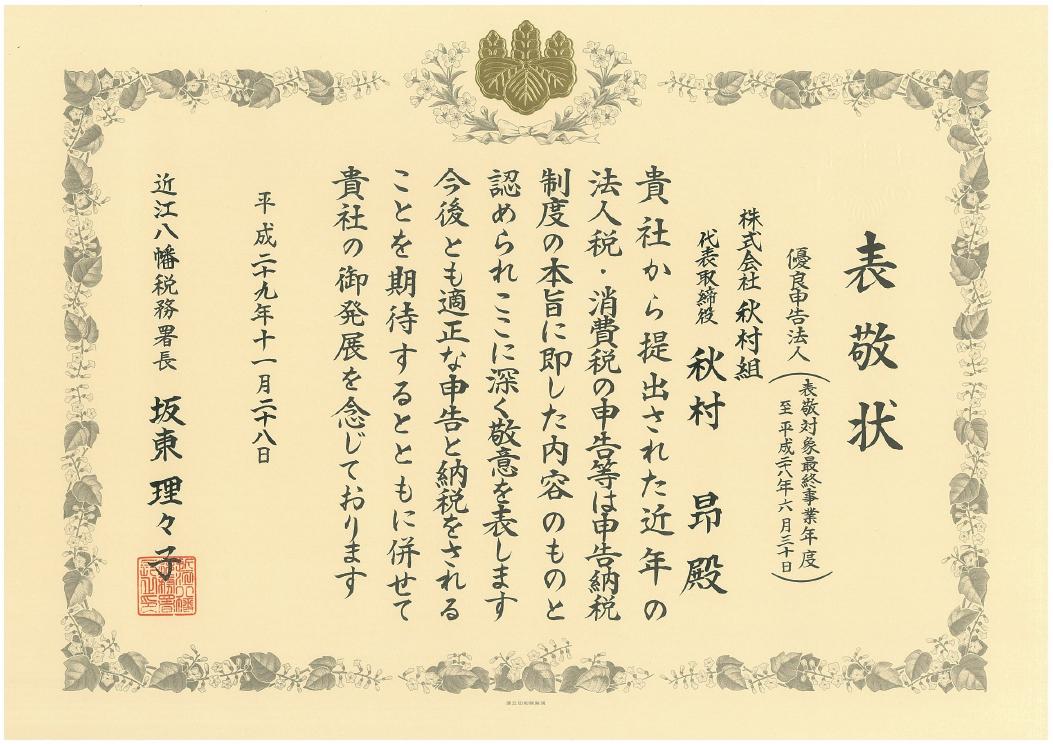 表敬状
優良申告法人(表敬対象最終事業年度 至平成二十八年六月三十日)
株式会社 秋村組
代表取締役 秋村 昂 殿
貴社から提出された近年の
法人税・消費税の申告等は申告納税
制度の本旨に即した内容のものと
認められここに深く敬意を表します
今後とも適正な申告と納税をされる
ことを期待するとともに併せて
貴社の御発展を念じております
平成二十九年十一月二十八日
近江八幡税務署長 坂東 理々子